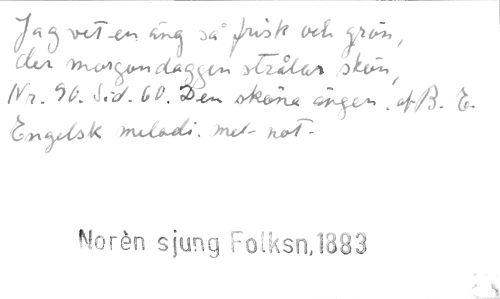 Jag vet en äng så frisk och grön,
der morgondaggen strålar skön,
Nr. 90. Sid. 60. Den sköna ängen. af B. E.
Engelsk melodi. met- not-
Norèn sjung Folksn,1883